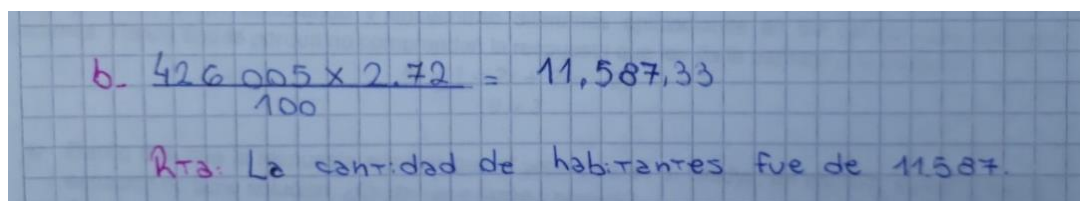 b- 426 005 x 2.72 = 11,587,33
100
Rta: La cantidad de habitantes fue de 11.587.